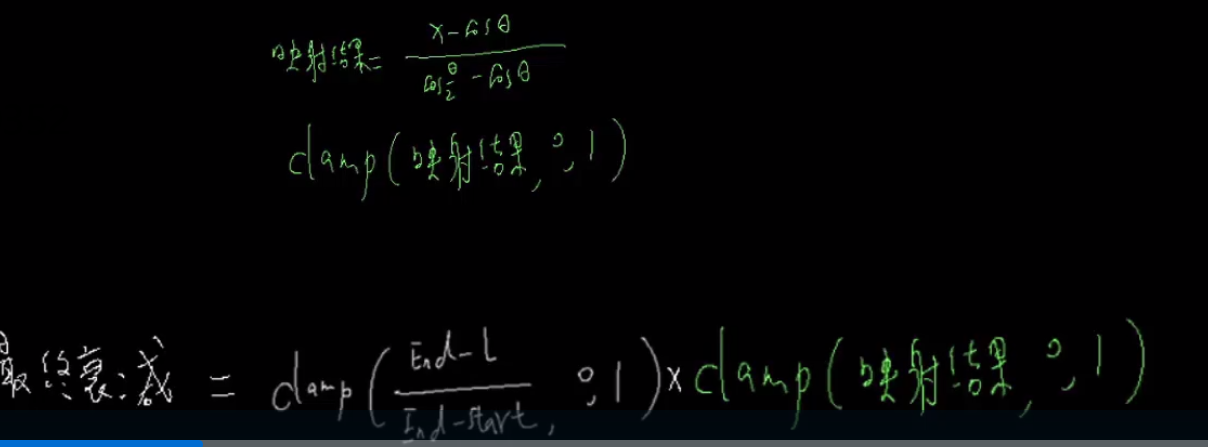 映射结果= (x-cosθ)/(cos θ/2 - cosθ)
clamp(映射结果, 0, 1)
最终衰减 = clamp((End-L)/(End-start), 0, 1)×clamp(映射结果, 0, 1)